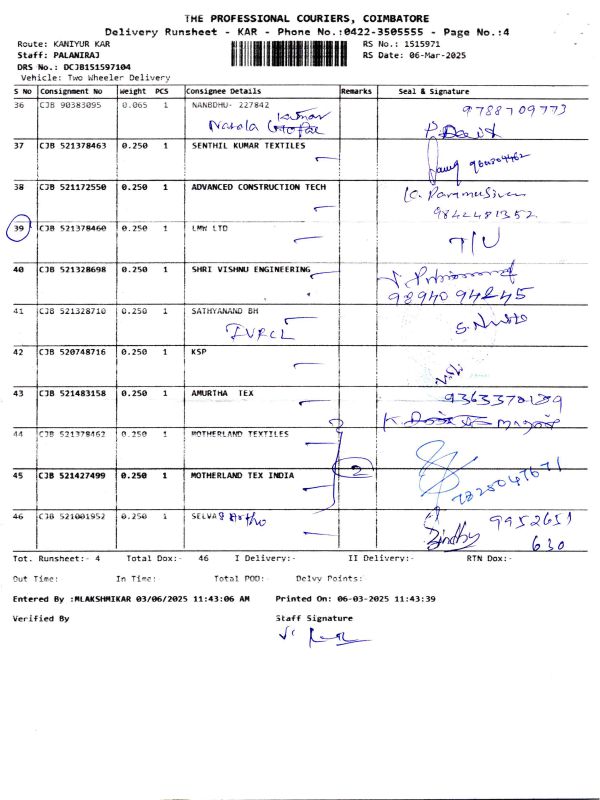 THE PROFESSIONAL COURIERS, COIMBATORE
Delivery Runsheet - KAR - Phone No.:0422-3505555 - Page No.:4
Route: KANIYUR KAR RS No.: 1515971
Staff: PALANIRAJ RS Date: 06-Mar-2025
DRS No.: DCJB151597104
Vehicle: Two Wheeler Delivery
S No Consignment No Weight PCS Consignee Details Remarks Seal & Signature
36 CJB 90383095 0.065 1 NANBDHU- 227842 9788709773
Kumar
37 CJB 521378463 0.250 1 SENTHIL KUMAR TEXTILES
38 CJB 521172550 0.250 1 ADVANCED CONSTRUCTION TECH
9842481352
39 CJB 521378460 0.250 1 LMW LTD T/U
40 CJB 521328698 0.250 1 SHRI VISHNU ENGINEERING
9894094245
41 CJB 521328710 0.250 1 SATHYANAND BH
IVRCL
42 CJB 520748716 0.250 1 KSP
43 CJB 521483158 0.250 1 AMURTHA TEX
44 CJB 521378462 0.250 1 MOTHERLAND TEXTILES
45 CJB 521427499 0.250 1 MOTHERLAND TEX INDIA 2
46 CJB 521001952 0.250 1 SELVA 9952651
630
Tot. Runsheet:- 4 Total Dox:- 46 I Delivery:- II Delivery:- RTN Dox:-
Out Time: In Time: Total POD:- Delvy Points:
Entered By :MLAKSHMIKAR 03/06/2025 11:43:06 AM Printed On: 06-03-2025 11:43:39
Verified By Staff Signature